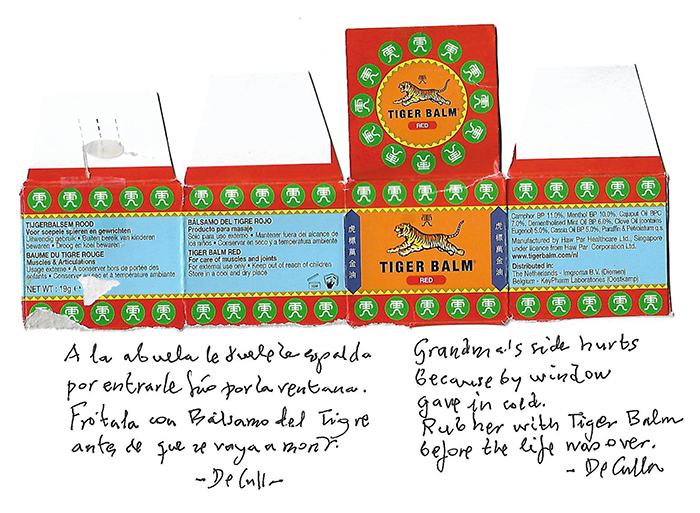 虎
TIGER BALM
RED
TIJGERBALSEM ROOD
Voor soepele spieren en gewrichten
Uitwendig gebruik • Buiten bereik van kinderen
bewaren • Droog en koel bewaren
BAUME DU TIGRE ROUGE
Muscles & Articulations
Usage externe • A conserver hors de portée des
enfants • Conserver au sec et à température ambiante
NET WT : 19g
BÁLSAMO DEL TIGRE ROJO
Producto para masaje
Solo para uso externo • Mantener fuera del alcance de
los niños • Conservar en seco y a temperatura ambiente
TIGER BALM RED
For care of muscles and joints
For external use only • Keep out of reach of children
Store in a cool and dry place
虎標萬金油
TIGER BALM
RED
虎標萬金油
Camphor BP 11.0%, Menthol BP 10.0%, Cajuput Oil BPC
7.0%, Dementholised Mint Oil BP 6.0%, Clove Oil (contains
Eugenol) 5.0%, Cassia Oil BP 5.0%, Paraffin & Petrolatum q.s.
Manufactured by Haw Par Healthcare Ltd., Singapore
under licence from Haw Par Corporation Ltd.
www.tigerbalm.com/nl
Distributed in:
The Netherlands - Imgroma B.V. (Diemen)
Belgium - KeyPharm Laboratories (Oostkamp)
A la abuela le duele la espalda
por entrarle frío por la ventana.
Frótala con Bálsamo del Tigre
antes de que se vaya a morir.
- De Culla
Grandma's side hurts
because by window
gave in cold.
Rub her with Tiger Balm
before the life was over.
- De Culla